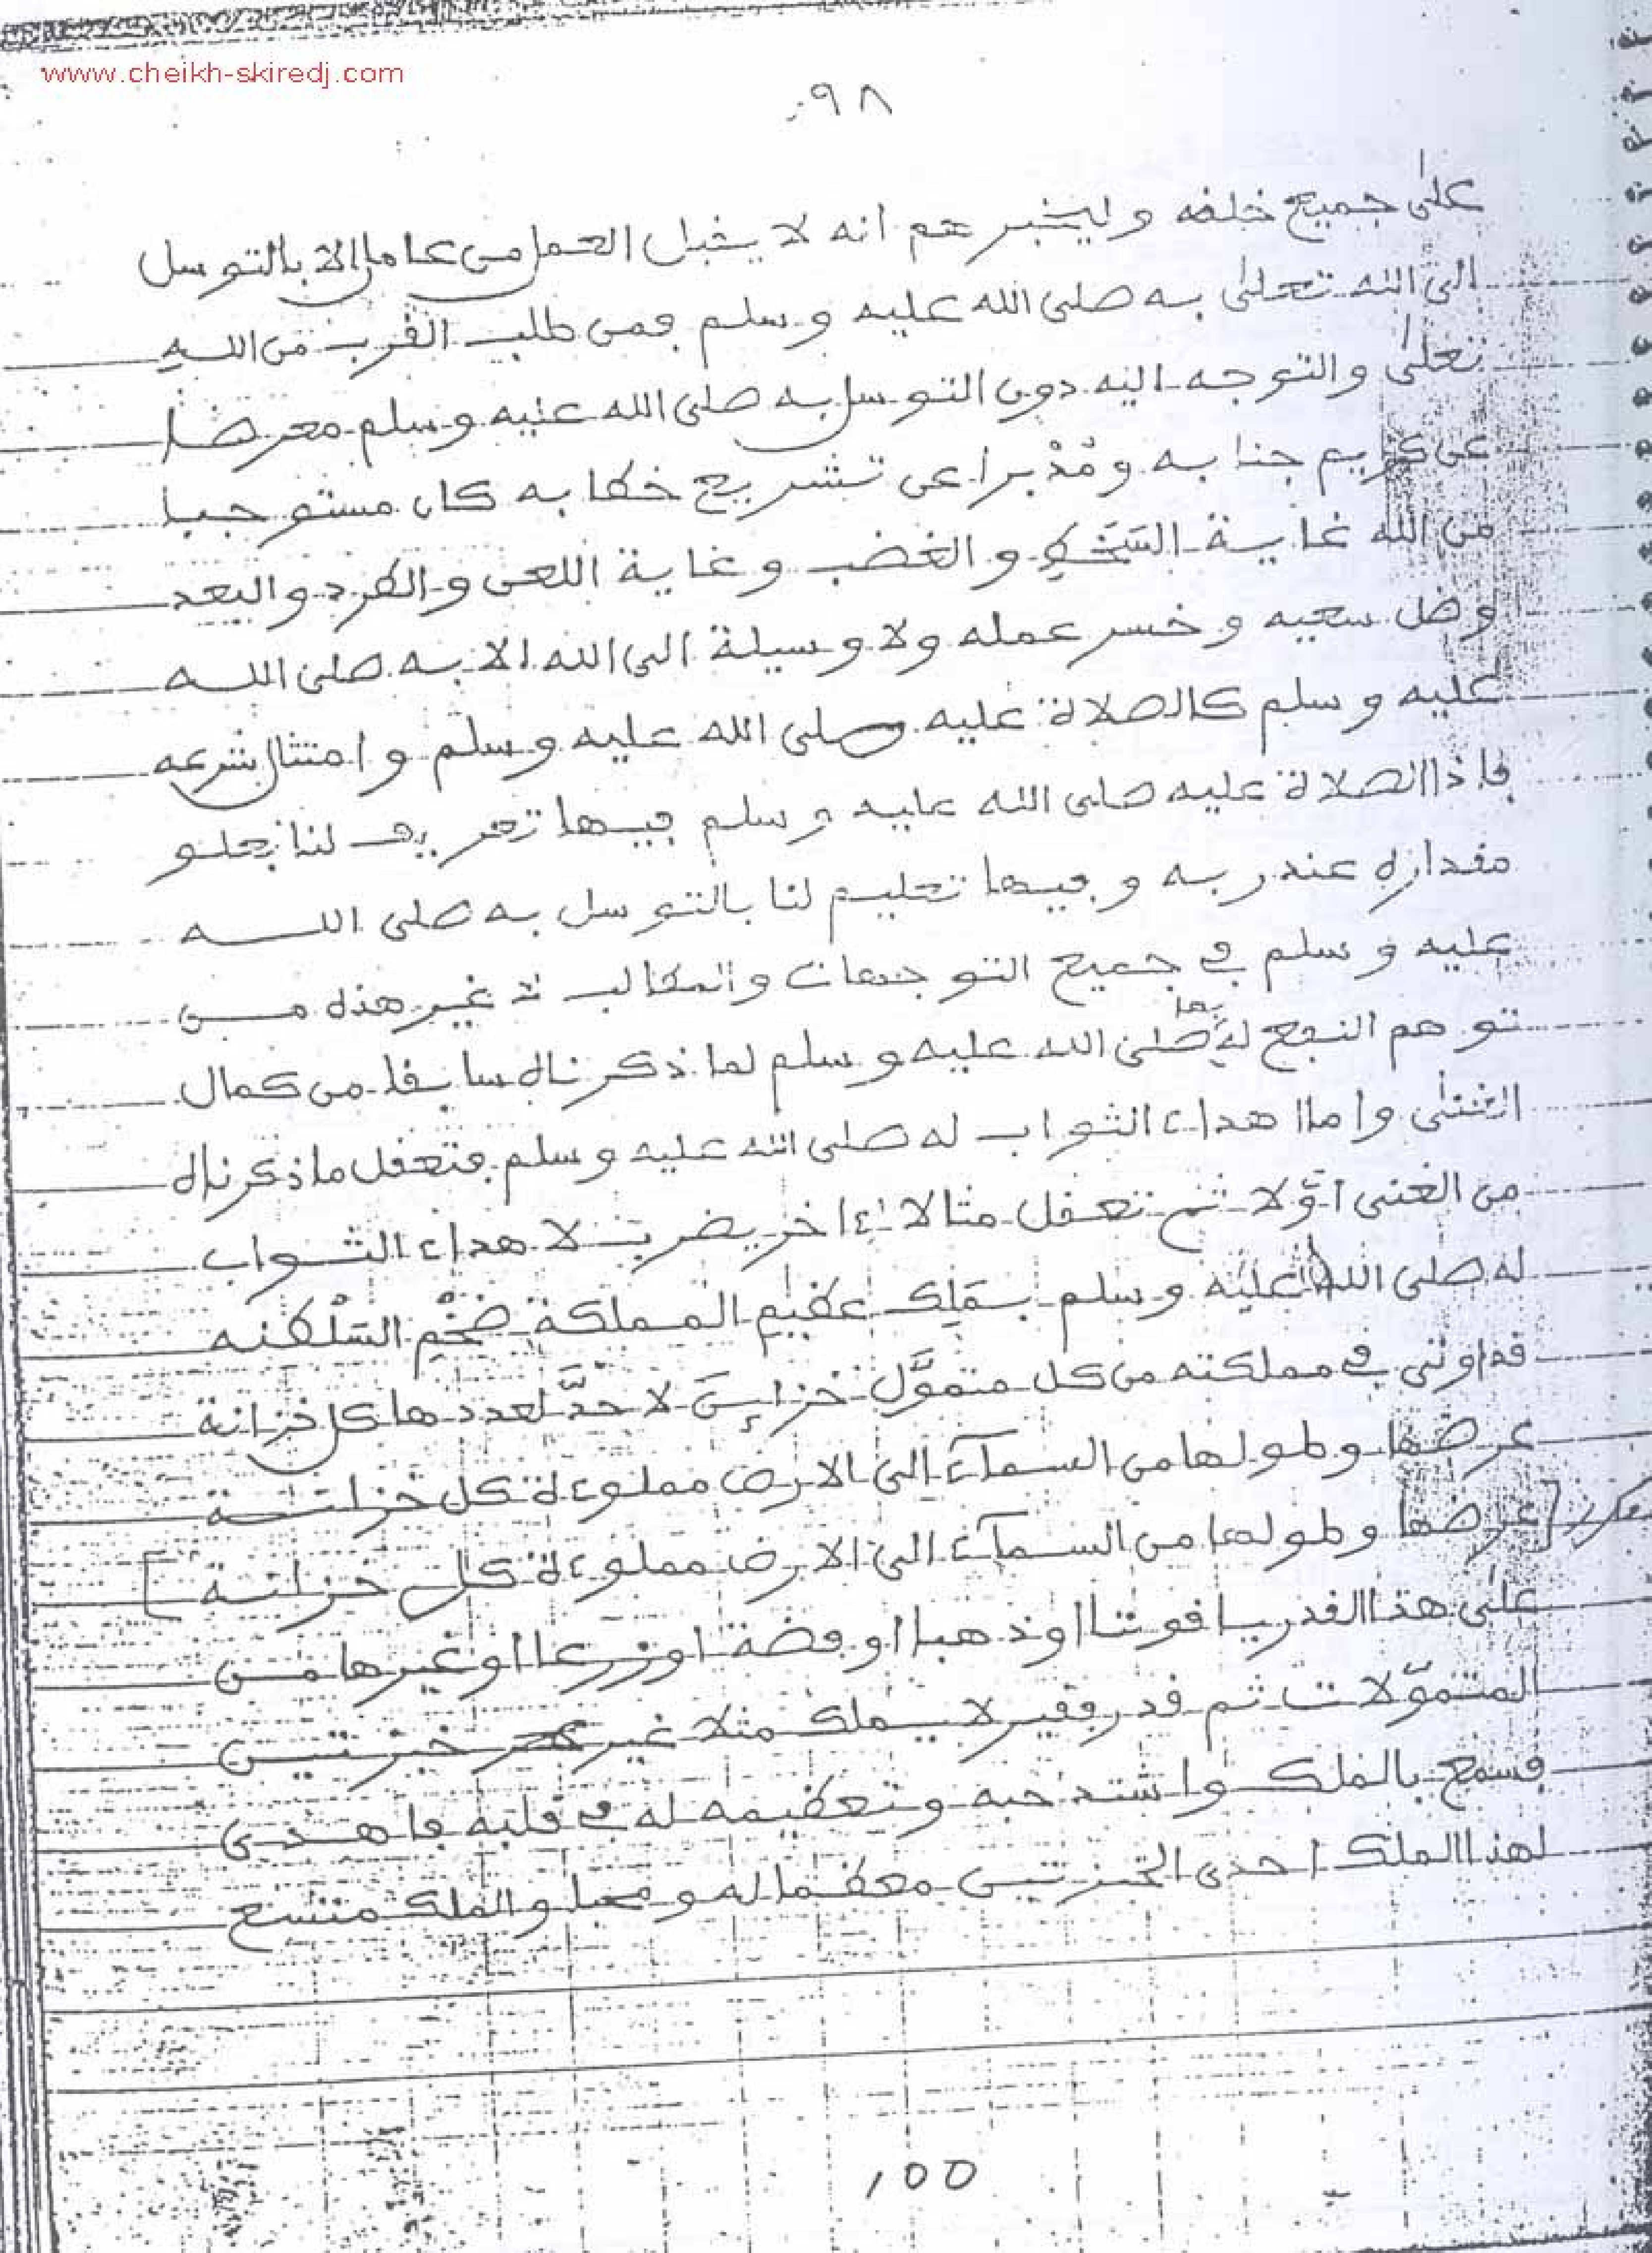 www.cheikh-skiredj.com
٩٨
على جميع خلفه وليخبرهم انه لا يقبل العمل من عامل الا بالتوسل
الى الله تعلى به صلى الله عليه وسلم فمن طلب القرب من الله
تعلى والتوجه اليه دون التوسل به صلى الله عليه وسلم معرضا
عن كريم جنابه ومُدْبرا عن تشريع خطابه كان مستوجبا
من الله غاية السَّخَطِ والغضب وغاية اللعن والطرد والبعد
وضل سعيه وخسر عمله ولا وسيلة الى الله الا به صلى الله
عليه وسلم كالصلاة عليه صلى الله عليه وسلم وامتثال شرعه
فاذا الصلاة عليه صلى الله عليه وسلم فيها تعريف لنا بعلو
مقداره عند ربه وفيها تعليم لنا بالتوسل به صلى الله
عليه وسلم في جميع التوجهات والمطالب لا غير هذه من
توهم النفع له بها صلى الله عليه وسلم لما ذكرناه سابقا من كمال
الغنى واما اهداء الثواب له صلى الله عليه وسلم فتعقل ما ذكرناه
من الغنى اوّلا ثم تعقل مثالا ءاخر يضرب لاهداء الثواب
له صلى الله عليه وسلم بمَلِك عظيم المملكة ضَخْمِ السَّلْطنه
قد اوتى في مملكته من كل متموَّل خزاءِنَ لا حدَّ لعددها كل خزانة
عرضها وطولها من السمآء الى الارض مملوءة كل خزانة
مكرر [عرضها وطولها من السمآء الى الارض مملوءة كل خزانة]
على هذا القدر ياقوتا او ذهبا او فضة او زرعا او غيرها من
المتموّلات ثم قدر فقير لا يملك مثلا غير خبزتين
فسمع بالملك واشتد حبه وتعظيمه له في قلبه فاهدى
لهذا الملك احدى الخبزتين معظما له ومحبا والملك متسع
100